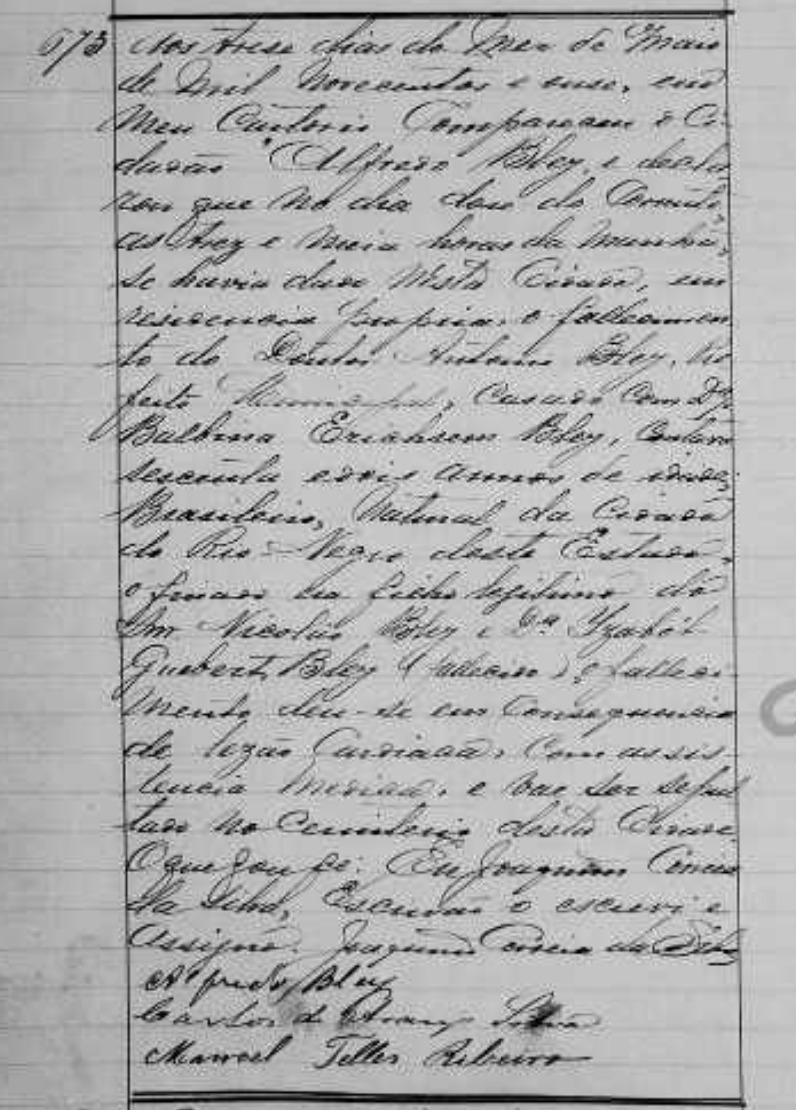 673 Aos trese dias do Mez de Maio
de mil novecentos e onse, em
Meu Cartorio Compareceu o Ci-
dadão Alfredo Bley, e decla
rou que no dia dose do Corrente,
as trez e meia horas da manhã,
se havia dado nesta Cidade, em
residencia propria, o fallecimen
to do Doutor Antonio Bley, Pre
feito Municipal, Casado Com Dª
Balbina Erichsem Bley, Contava
sescenta e dois annos de idade,
Brasileiro, Natural da Cidade
do Rio-Negro deste Estado,
o finado era filho legitimo do
Snr Nicolau Bley e Dª Izabel
Guebert Bley (fallecidos), o falleci-
mento deu-se em Consequencia
de lezão Cardiaca, Com assis-
tencia medica, e vae ser sepul
tado no Cemiterio desta Cidade
O que dou fé. Eu Joaquim Correia
da Silva, Escrivão o escrevi e
Assigno. Joaquim Correia da Silva
Alfredo Bley
Carlos de
Manoel Telles Ribeiro